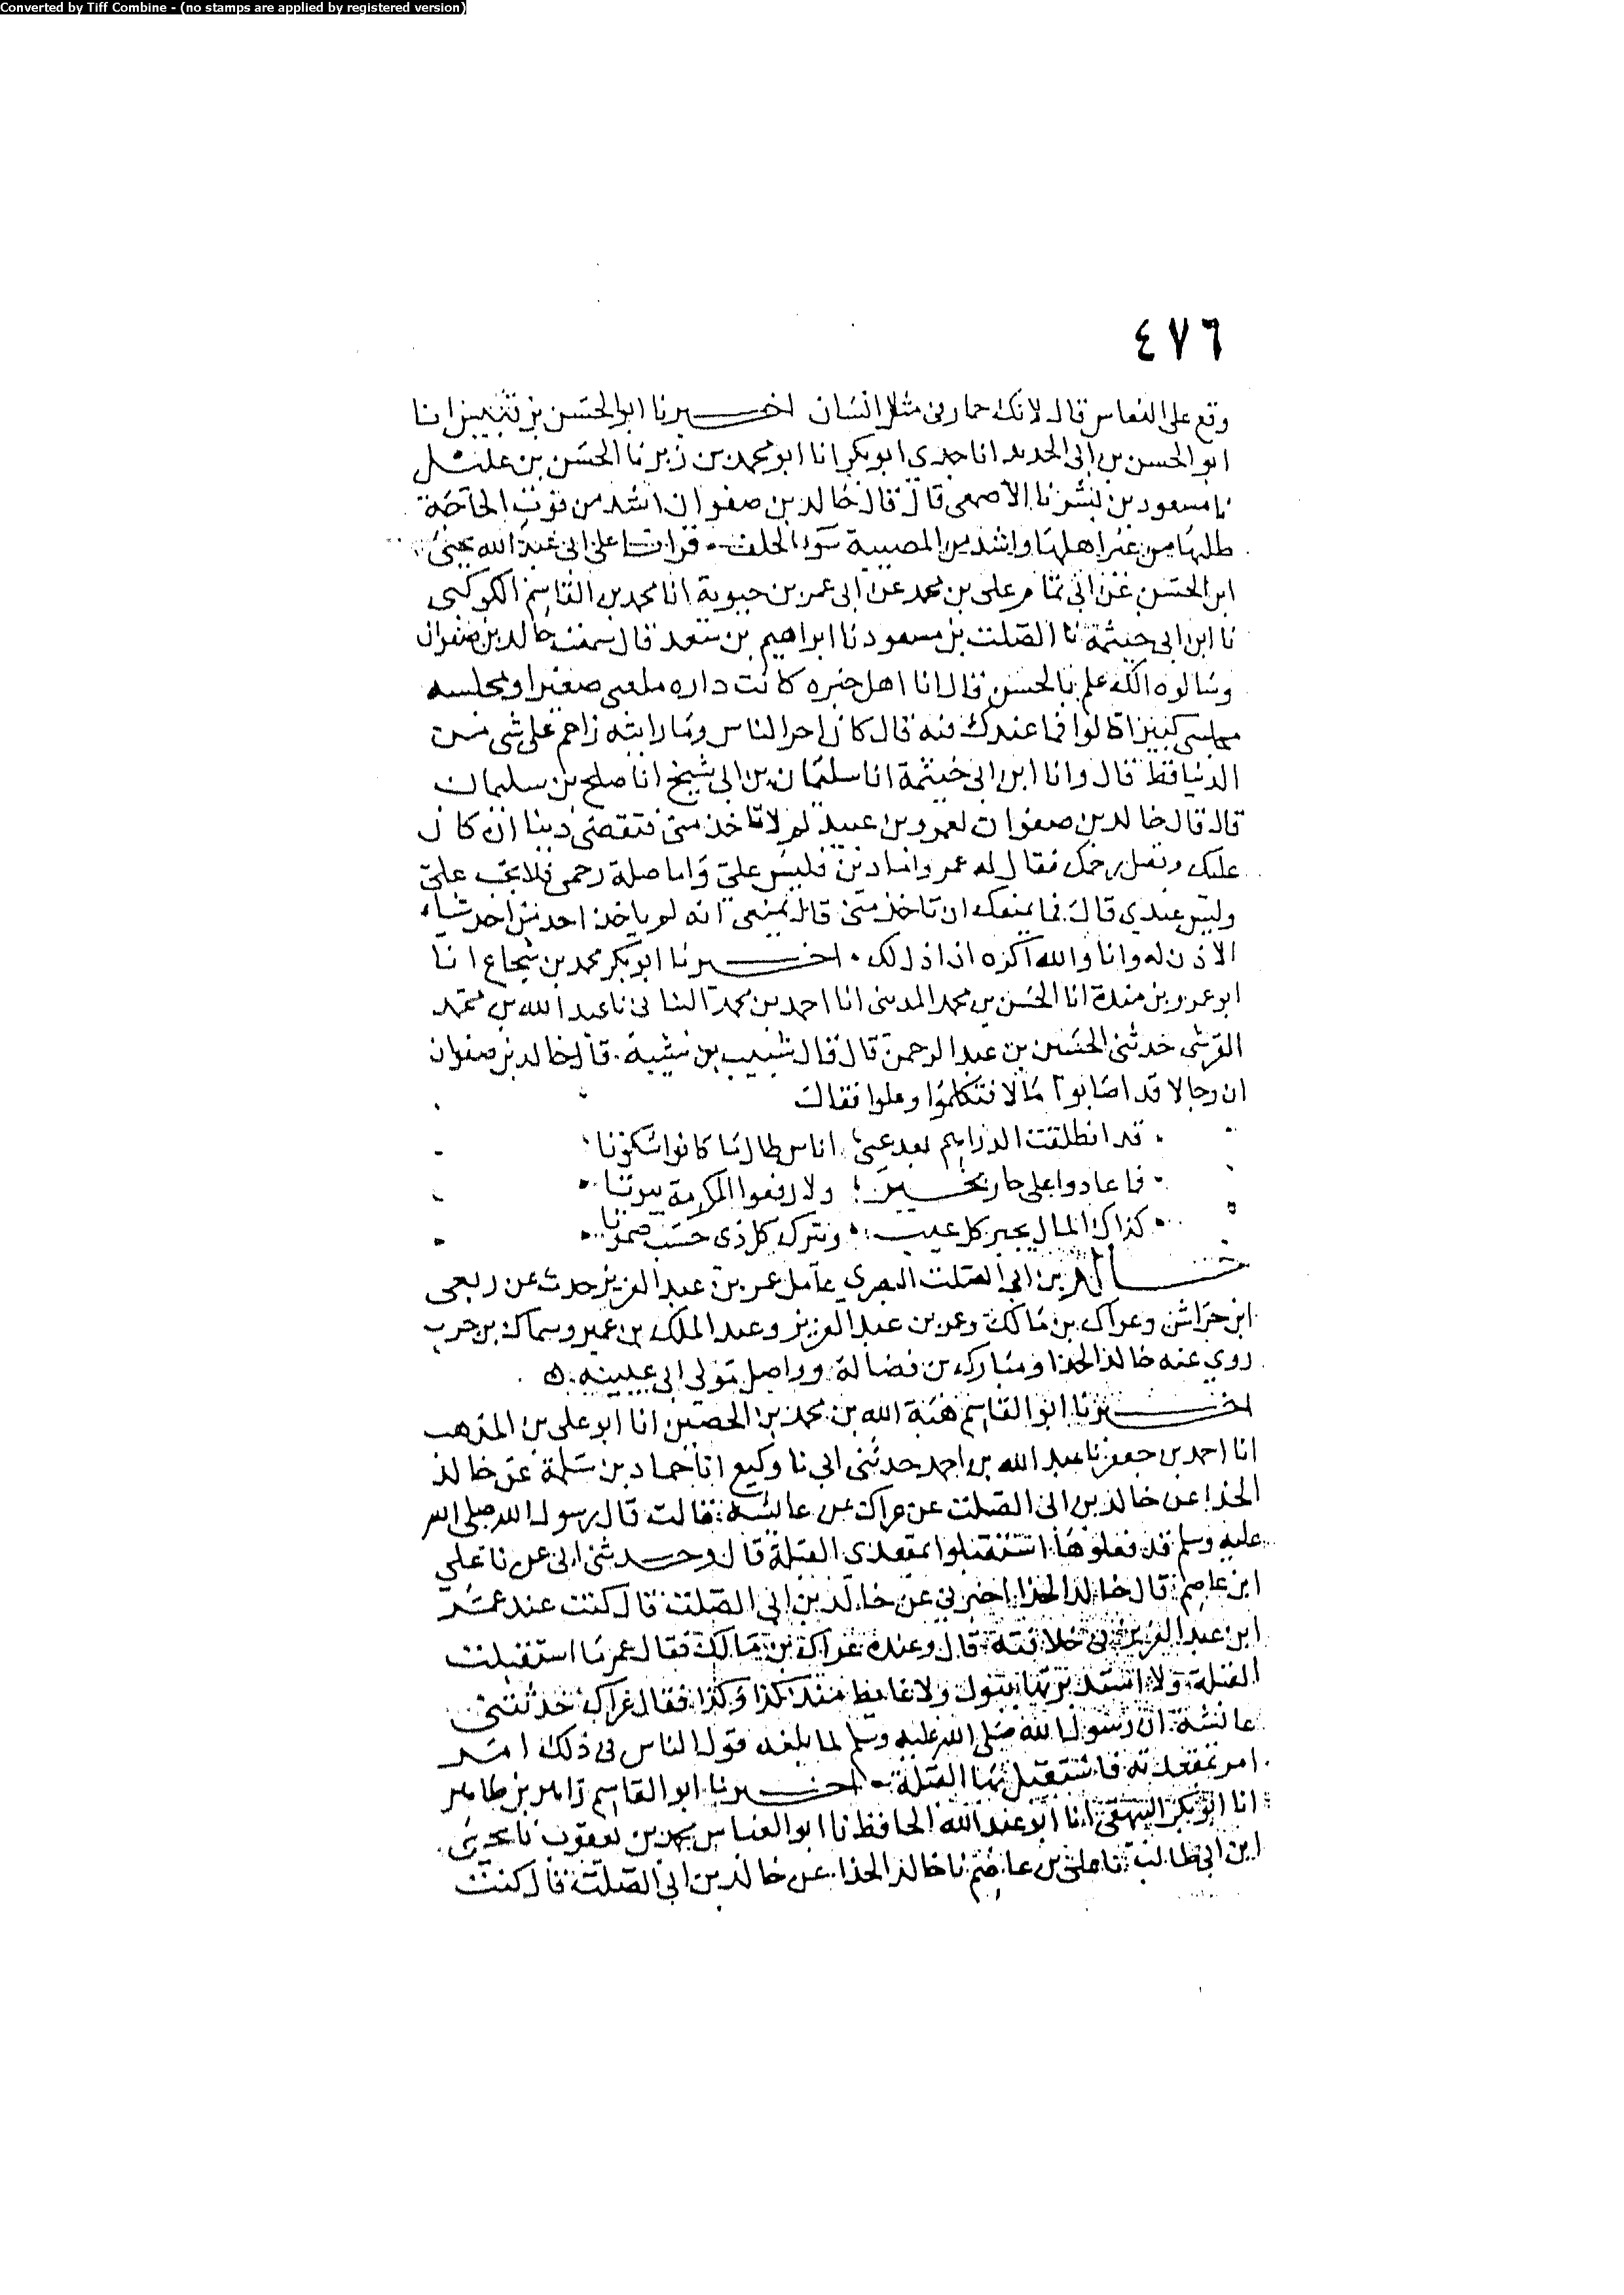 Converted by Tiff Combine - (no stamps are applied by registered version)
٤٧٦
وقع على النعاس قال لانك حمار فى مثلا انسان اخبرنا ابو الحسن بن قبيس انا
ابو الحسن بن ابى الحديد انا جدي ابو بكر انا ابو محمد بن زبر نا الحسن بن عليل
نا مسعود بن بشر نا الاصمعى قال قال خالد بن صفوان اشد من فوت الحاجة
طلبها من غير اهلها واشد من المصيبة سوء الخلف قرات على ابى عبد الله يحيى
ابن الحسن عن ابى تمام على بن محمد عن ابى عمر بن حيوية انا محمد بن القاسم الكوكبى
نا ابن ابى خيثمة نا الصلت بن مسعود نا ابراهيم بن سعد قال سمعت خالد بن صفوان
وسالوه اللك علم بالحسن قال انا اهل خبره كانت داره ملعبى صغيرا ومجلسه
مجلسى كبيرا قالوا فما عندك فيه قال كان احر الناس وما رايته زاحم على شى من
الدنيا قط قال وانا ابن ابى خيثمة انا سليمان بن ابى شيخ انا صلح بن سليمان
قال قال خالد بن صفوان لعمرو بن عبيد لم لا تاخذ منى فتقضى دينا ان كان
عليك وتصل رحمك فقال له عمرو اما دين فليس علي واما صلة رحمى فلا يجب علي
وليس عندي قال فما يمنعك ان تاخذ منى قال يمنعنى انه لم ياخذ احد من احد شياء
الا ذل له وانا والله اكره ان اذل لك اخبرنا ابو بكر محمد بن شجاع انا
ابو عمرو بن مندة انا الحسن بن محمد المدينى انا احمد بن محمد اللنبانى نا عبد الله بن محمد
القرشى حدثنى الحسين بن عبد الرحمن قال قال شبيب بن شيبة قال خالد بن صفوان
ان رجالا قد اصابوا مالا فتكلموا وعلوا فقال
قد انطلقت الدراهم بعد عى اناس طال ما كانوا سكوتا
فما عادوا على جار بخير ولا رفعوا لمكرمة بيوتا
كذاك المال يجبر كل عيب ونترك كل ذى حسب صموتا
خالد بن ابى الصلت البصري عامل عمر بن عبد العزيز حدث عن ربعى
ابن حراش وعراك بن مالك وعمر بن عبد العزيز وعبد الملك بن عمير وسماك بن حرب
روي عنه خالد الحذا ومبارك بن فضالة وواصل مولى ابى عيينه ه
اخبرنا ابو القاسم هبة الله بن محمد بن الحصين انا ابو على بن المذهب
انا احمد بن جعفر نا عبد الله بن احمد حدثنى ابى نا وكيع انا حماد بن سلمة عن خالد
الحذا عن خالد بن ابى الصلت عن عراك عن عائشة قالت قال رسول الله صلى الله
عليه وسلم قد فعلوها استقبلوا بمقعدى القبلة قال وحدثنى ابى عن نا علي
ابن عاصم قال خالد الحذا اخبرنى عن خالد بن ابى الصلت قال كنت عند عمر
ابن عبد العزيز فى خلافته قال وعنده عراك بن مالك فقال عمر ما استقبلت
القبلة ولا استدبرتها ببول ولا غايط منذ كذا وكذا فقال عراك حدثتنى
عائشة ان رسول الله صلى الله عليه وسلم لما بلغه قول الناس فى ذلك امر
امر بمقعدته فاستقبل بها القبلة اخبرنا ابو القاسم زاهر بن طاهر
انا ابو بكر البيهقى انا ابو عبد الله الحافظ نا ابو العباس محمد بن يعقوب نا يحيى
ابن ابى طالب نا على بن عاصم نا خالد الحذا عن خالد بن ابى الصلت قال كنت